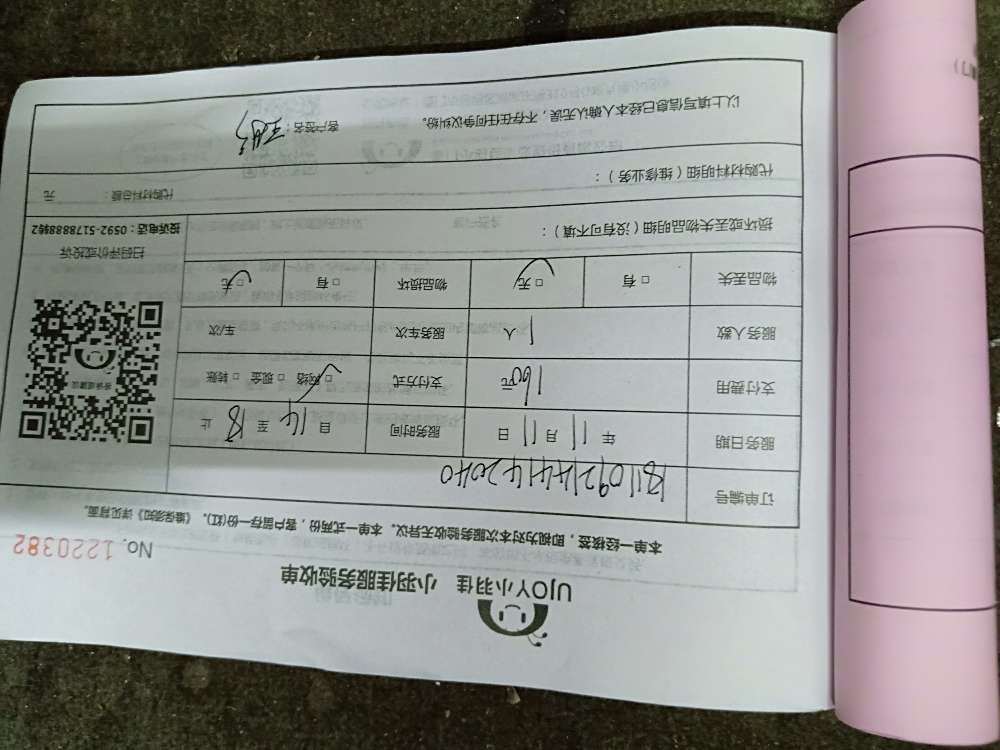 UJOY小羽佳 小羽佳服务验收单
No. 1220382
本单一经核签，即视为对本次服务验收无异议。本单一式两份，客户留存一份(红)。《维保须知》详见背面。
订单编号
服务日期 年 11 月 11 日 服务时间 14 至 18 止
支付费用 160元 支付方式 □网络 □现金 □转账
服务人数 1 人 服务车次 车/次
物品丢失 □有 □无 物品损坏 □有 □无
损坏或丢失物品明细（没有可不填）：
代购材料明细（维修业务）：
代购材料总额： 元
以上填写信息已经本人确认无误，不存在任何争议纠纷。 客户签名：
扫码评价或投诉
投诉电话：0592-5178888转2